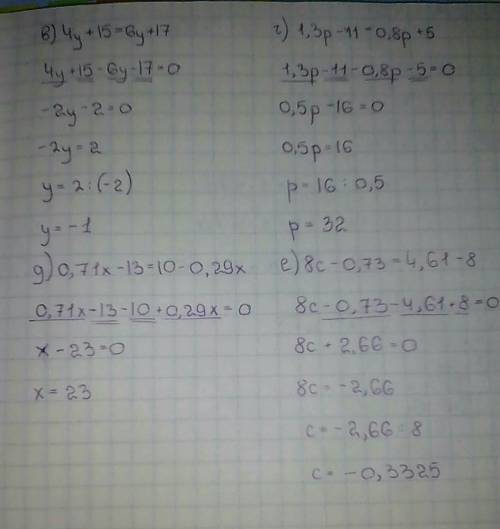 в) 4y+15=6y+17
4y+15-6y-17=0
-2y-2=0
-2y=2
y=2:(-2)
y=-1
г) 1,3p-11=0,8p+5
1,3p-11-0,8p-5=0
0,5p-16=0
0,5p=16
p=16:0,5
p=32
g) 0,71x-13=10-0,29x
0,71x-13-10+0,29x=0
x-23=0
x=23
e) 8c-0,73=4,61-8
8c-0,73-4,61+8=0
8c+2,66=0
8c=-2,66
c=-2,66:8
c=-0,3325